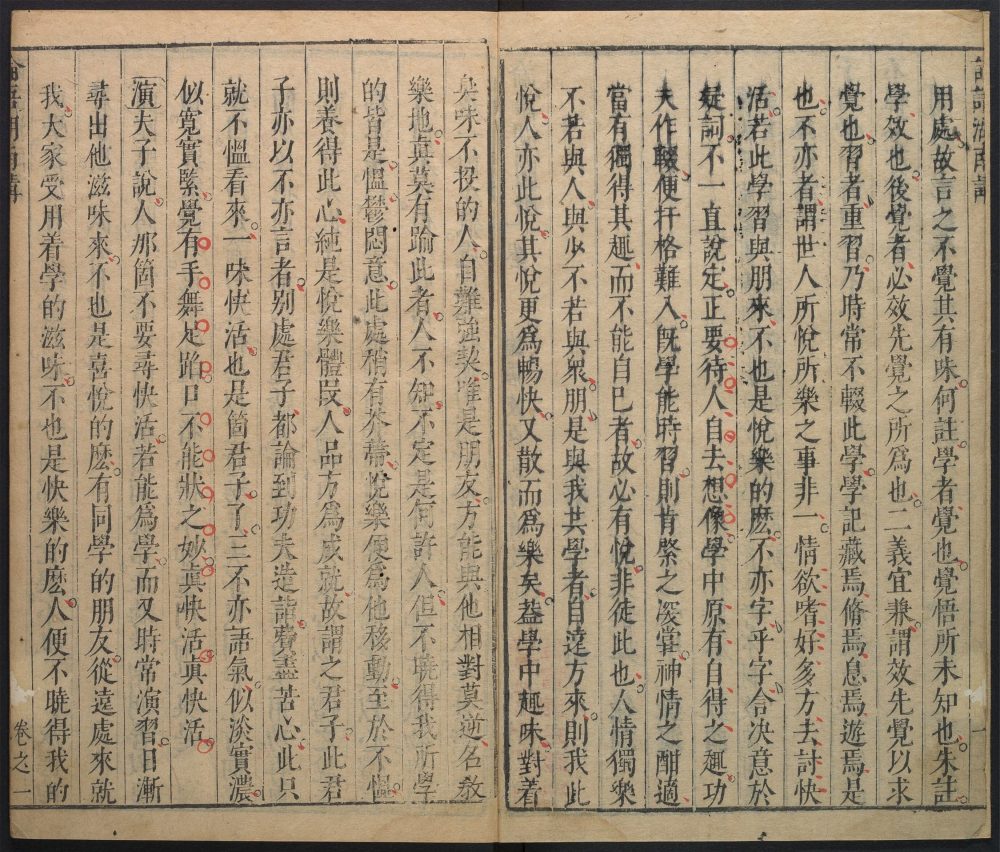 用處故言之不覺其有味何註學者覺也覺悟所未知也朱註
學效也後覺者必效先覺之所爲也二義宜兼謂效先覺以求
覺也習者重習乃時常不輟此學學記藏焉脩焉息焉遊焉是
也不亦者謂世人所悅所樂之事非一情欲嗜好多方去討快
活若此學習與朋來不也是悅樂的麽不亦字乎字合决意於
疑詞不一直說定正要待人自去想像學中原有自得之趣功
夫作輟便扞格難入旣學能時習則肯綮之深嘗神情之酣適
當有獨得其趣而不能自已者故必有悅非徒此也人情獨樂
不若與人與少不若與衆朋是與我共學者自遠方來則我此
悅人亦此悅其悅更爲暢快又散而爲樂矣葢學中趣味對着
臭味不投的人自難強契唯是朋友方能與他相對莫逆名敎
樂地眞莫有踰此者人不知不定是何許人但不曉得我所學
的皆是慍鬱悶意此處稍有芥蔕悅樂便爲他移動至於不慍
則養得此心純是悅樂體叚人品方爲成就故謂之君子此君
子亦以不亦言者别處君子都論到功夫造詣費盡苦心此只
就不慍看來一味快活也是箇君子了三不亦語氣似淡實濃
似寛實緊覺有手舞足蹈口不能狀之妙眞快活眞快活
演夫子說人那箇不要尋快活若能爲學而又時常演習日漸
尋出他滋味來不也是喜悅的麽有同學的朋友從遠處來就
我大家受用着學的滋味不也是快樂的麽人便不曉得我的
卷之一
一